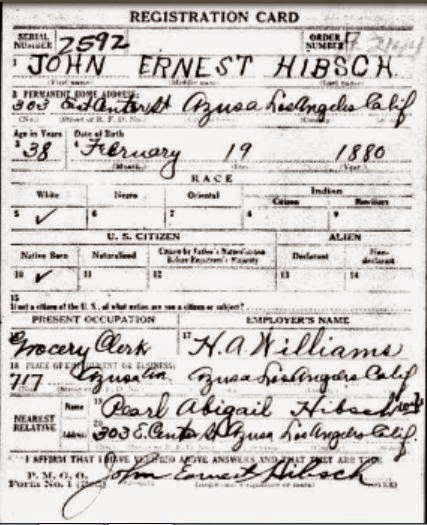 REGISTRATION CARD
SERIAL NUMBER 2592 ORDER NUMBER
1 JOHN ERNEST HIBSCH
(First name) (Middle name) (Last name)
2 PERMANENT HOME ADDRESS:
303 East Center St Azusa Los Angeles Calif
(No.) (Street or R. F. D. No.) (State)
Age in Years Date of Birth
3 38 4 February 19 1880
(Month.) (Day.) (Year.)
RACE
White Negro Oriental Indian
Citizen Noncitizen
5 ✓ 6 7 8 9
U. S. CITIZEN ALIEN
Native Born Naturalized Citizen by Father's Naturalization Before Registrant's Majority Declarant Non-declarant
10 ✓ 11 12 13 14
15
If not a citizen of the U. S., of what nation are you a citizen or subject?
PRESENT OCCUPATION EMPLOYER'S NAME
Grocery Clerk 17 H. A. Williams
18 PLACE OF EMPLOYMENT OR BUSINESS:
717 Azusa Av. Azusa Los Angeles Calif
NEAREST RELATIVE Name 19 Pearl Abigail Hibsch
Address 20 303 E. Center St Azusa Los Angeles Calif.
I AFFIRM THAT I HAVE VERIFIED ABOVE ANSWERS AND THAT THEY ARE TRUE
P. M. G. O.
Form No. 1 (Red) John Ernest Hibsch
(OVER)